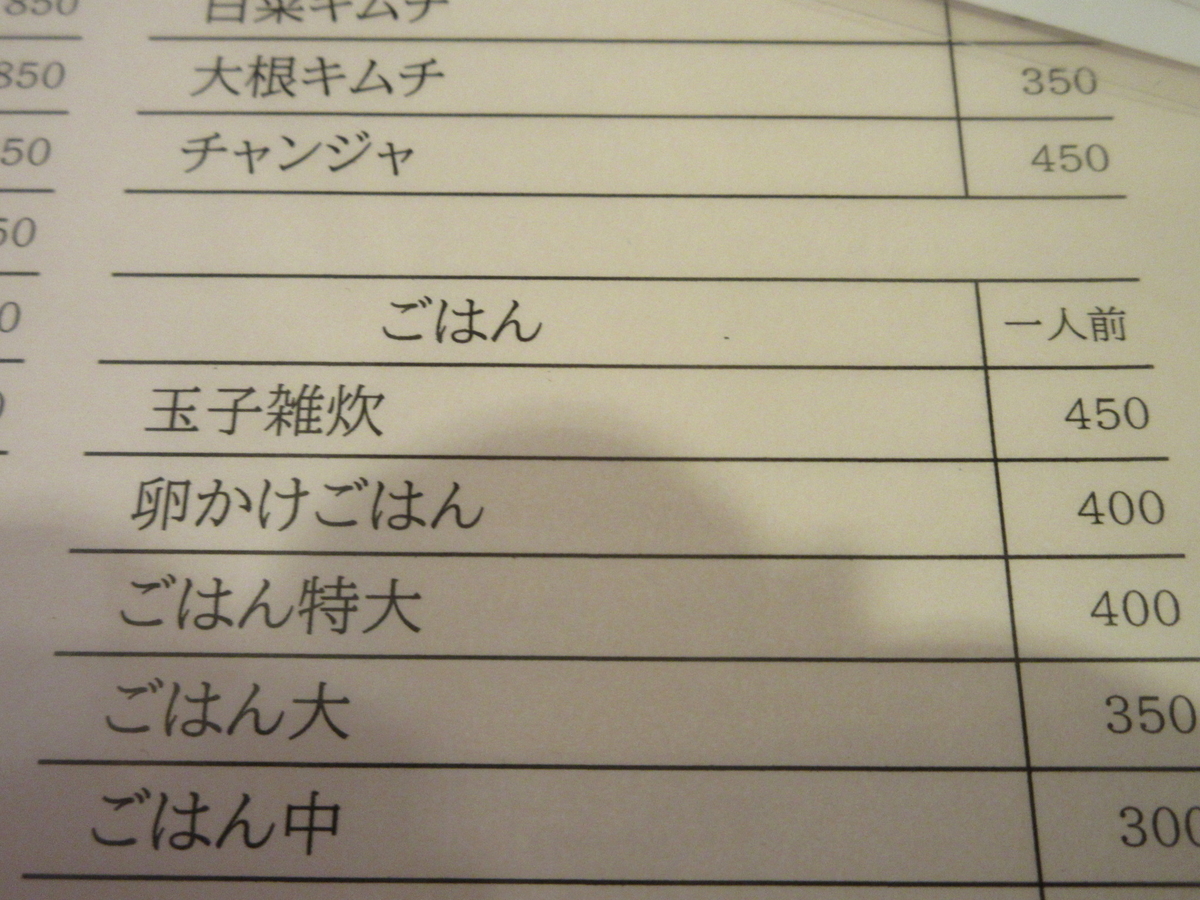 850
白菜キムチ
850
大根キムチ 350
50
チャンジャ 450
50
ごはん 一人前
玉子雑炊 450
卵かけごはん 400
ごはん特大 400
ごはん大 350
ごはん中 300